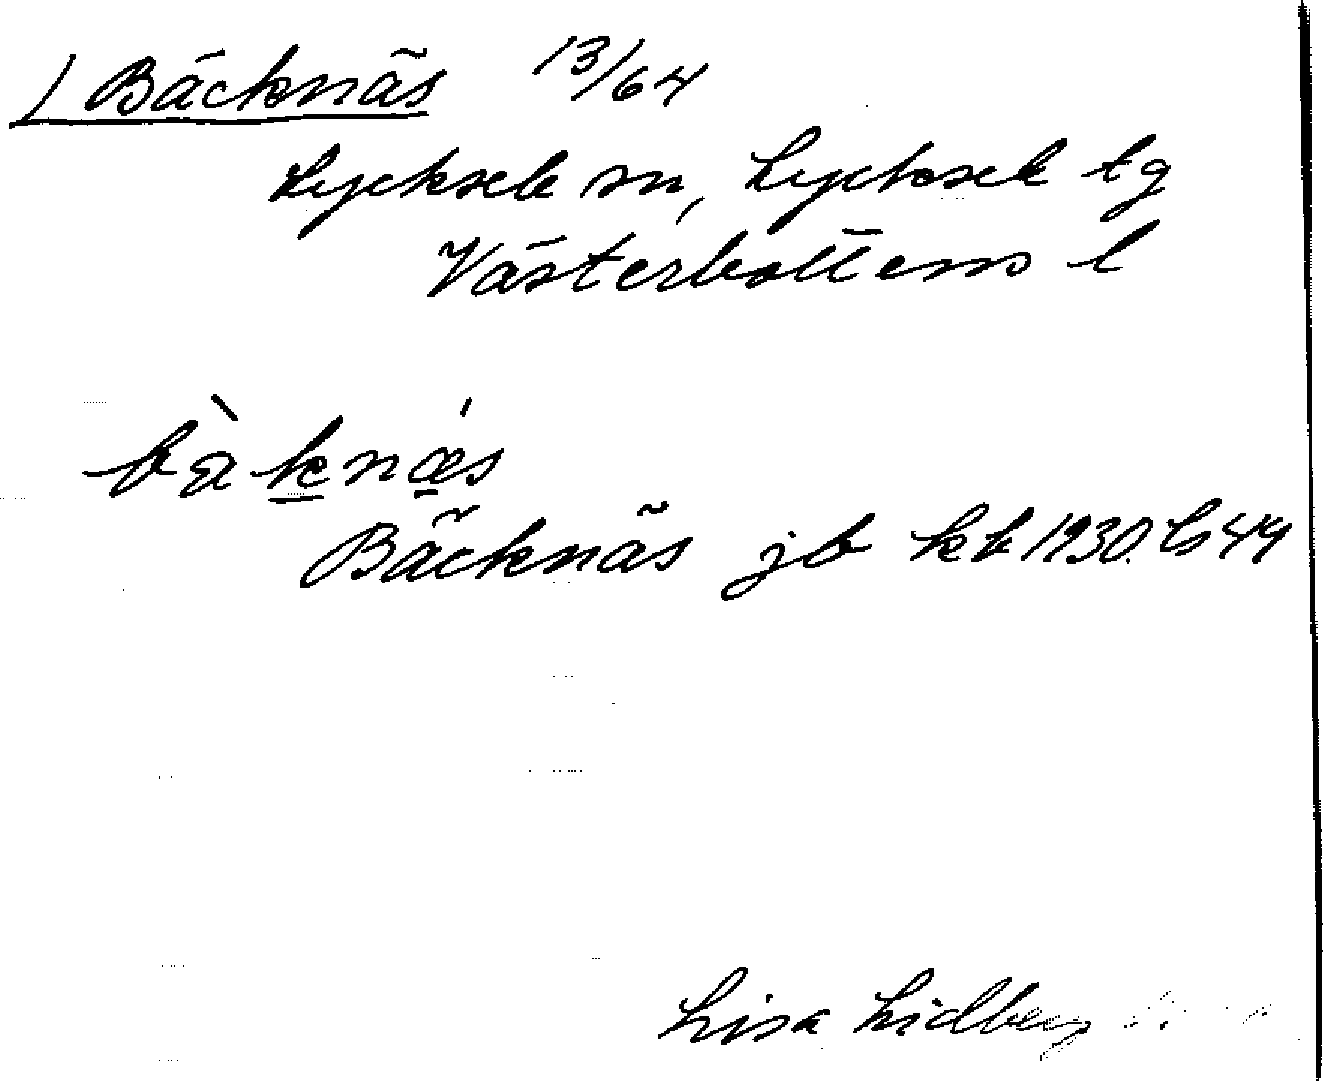 / Bäcknäs 13/64
Lycksele sn, Lycksele tg
Västerbottens l
bàknǽs
Bäcknäs jb kk 1930. b 44
Lisa Lidberg